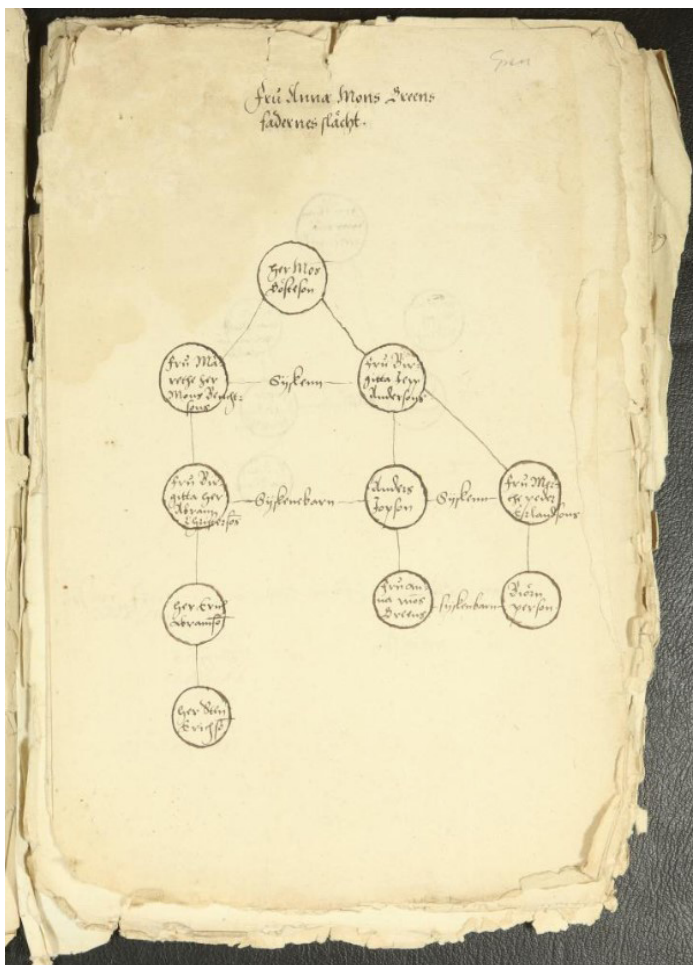 Frú Anna Mons Greens
fädernes slächt.
her Mos
Gösteson
Frú Mä-
rethe her
Mons Bengt-
sons
Syskenn
Frú Bir-
gitta Jepp
Andersons
Frú Bir-
gitta her
Abram
Syskenebarn
Anders
Jopson
Syskenn
Frú Mer-
the peder
Erlandsons
her Erich
Abramsō
Frú An-
na mōs
Greens
syskenbarn
Biörn
person
her Sten
Erichsō